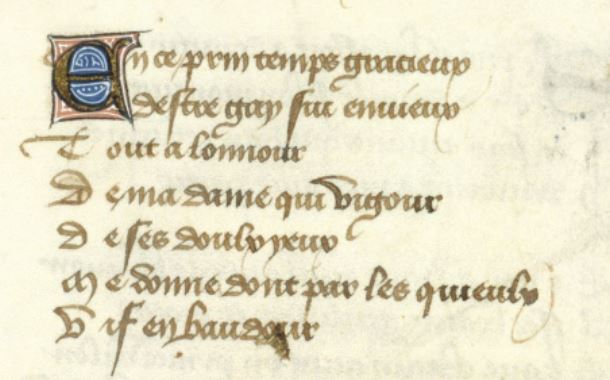 En ce printemps gracieux
Destre gay sui enuieux
Tout a lonnour
De ma dame qui vigour
De ses doulx yeux
Me donne dont par les quieulx
Vif en baudour